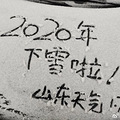 2020年
下雪啦！
山东天气